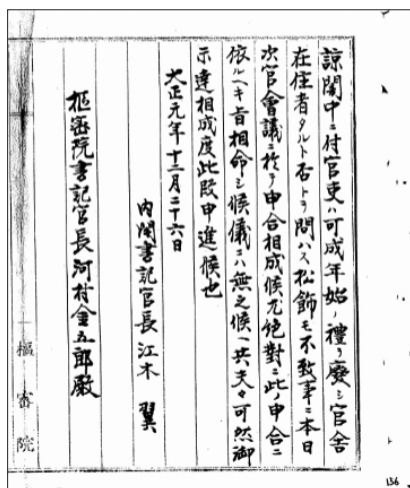 諒闇中ニ付官吏ハ可成年始ノ禮ヲ廢シ官舎
在住者タルト否トヲ問ハス松飾モ不致事ニ本日
次官會議ニ於テ申合相成候尤絶對ニ此ノ申合ニ
依ルヘキ旨相命シ候儀ニハ無之候ヘ共夫々可然御
示達相成度此段申進候也
大正元年十二月二十六日
内閣書記官長江木翼
樞密院書記官長河村金五郎殿
樞密院
136